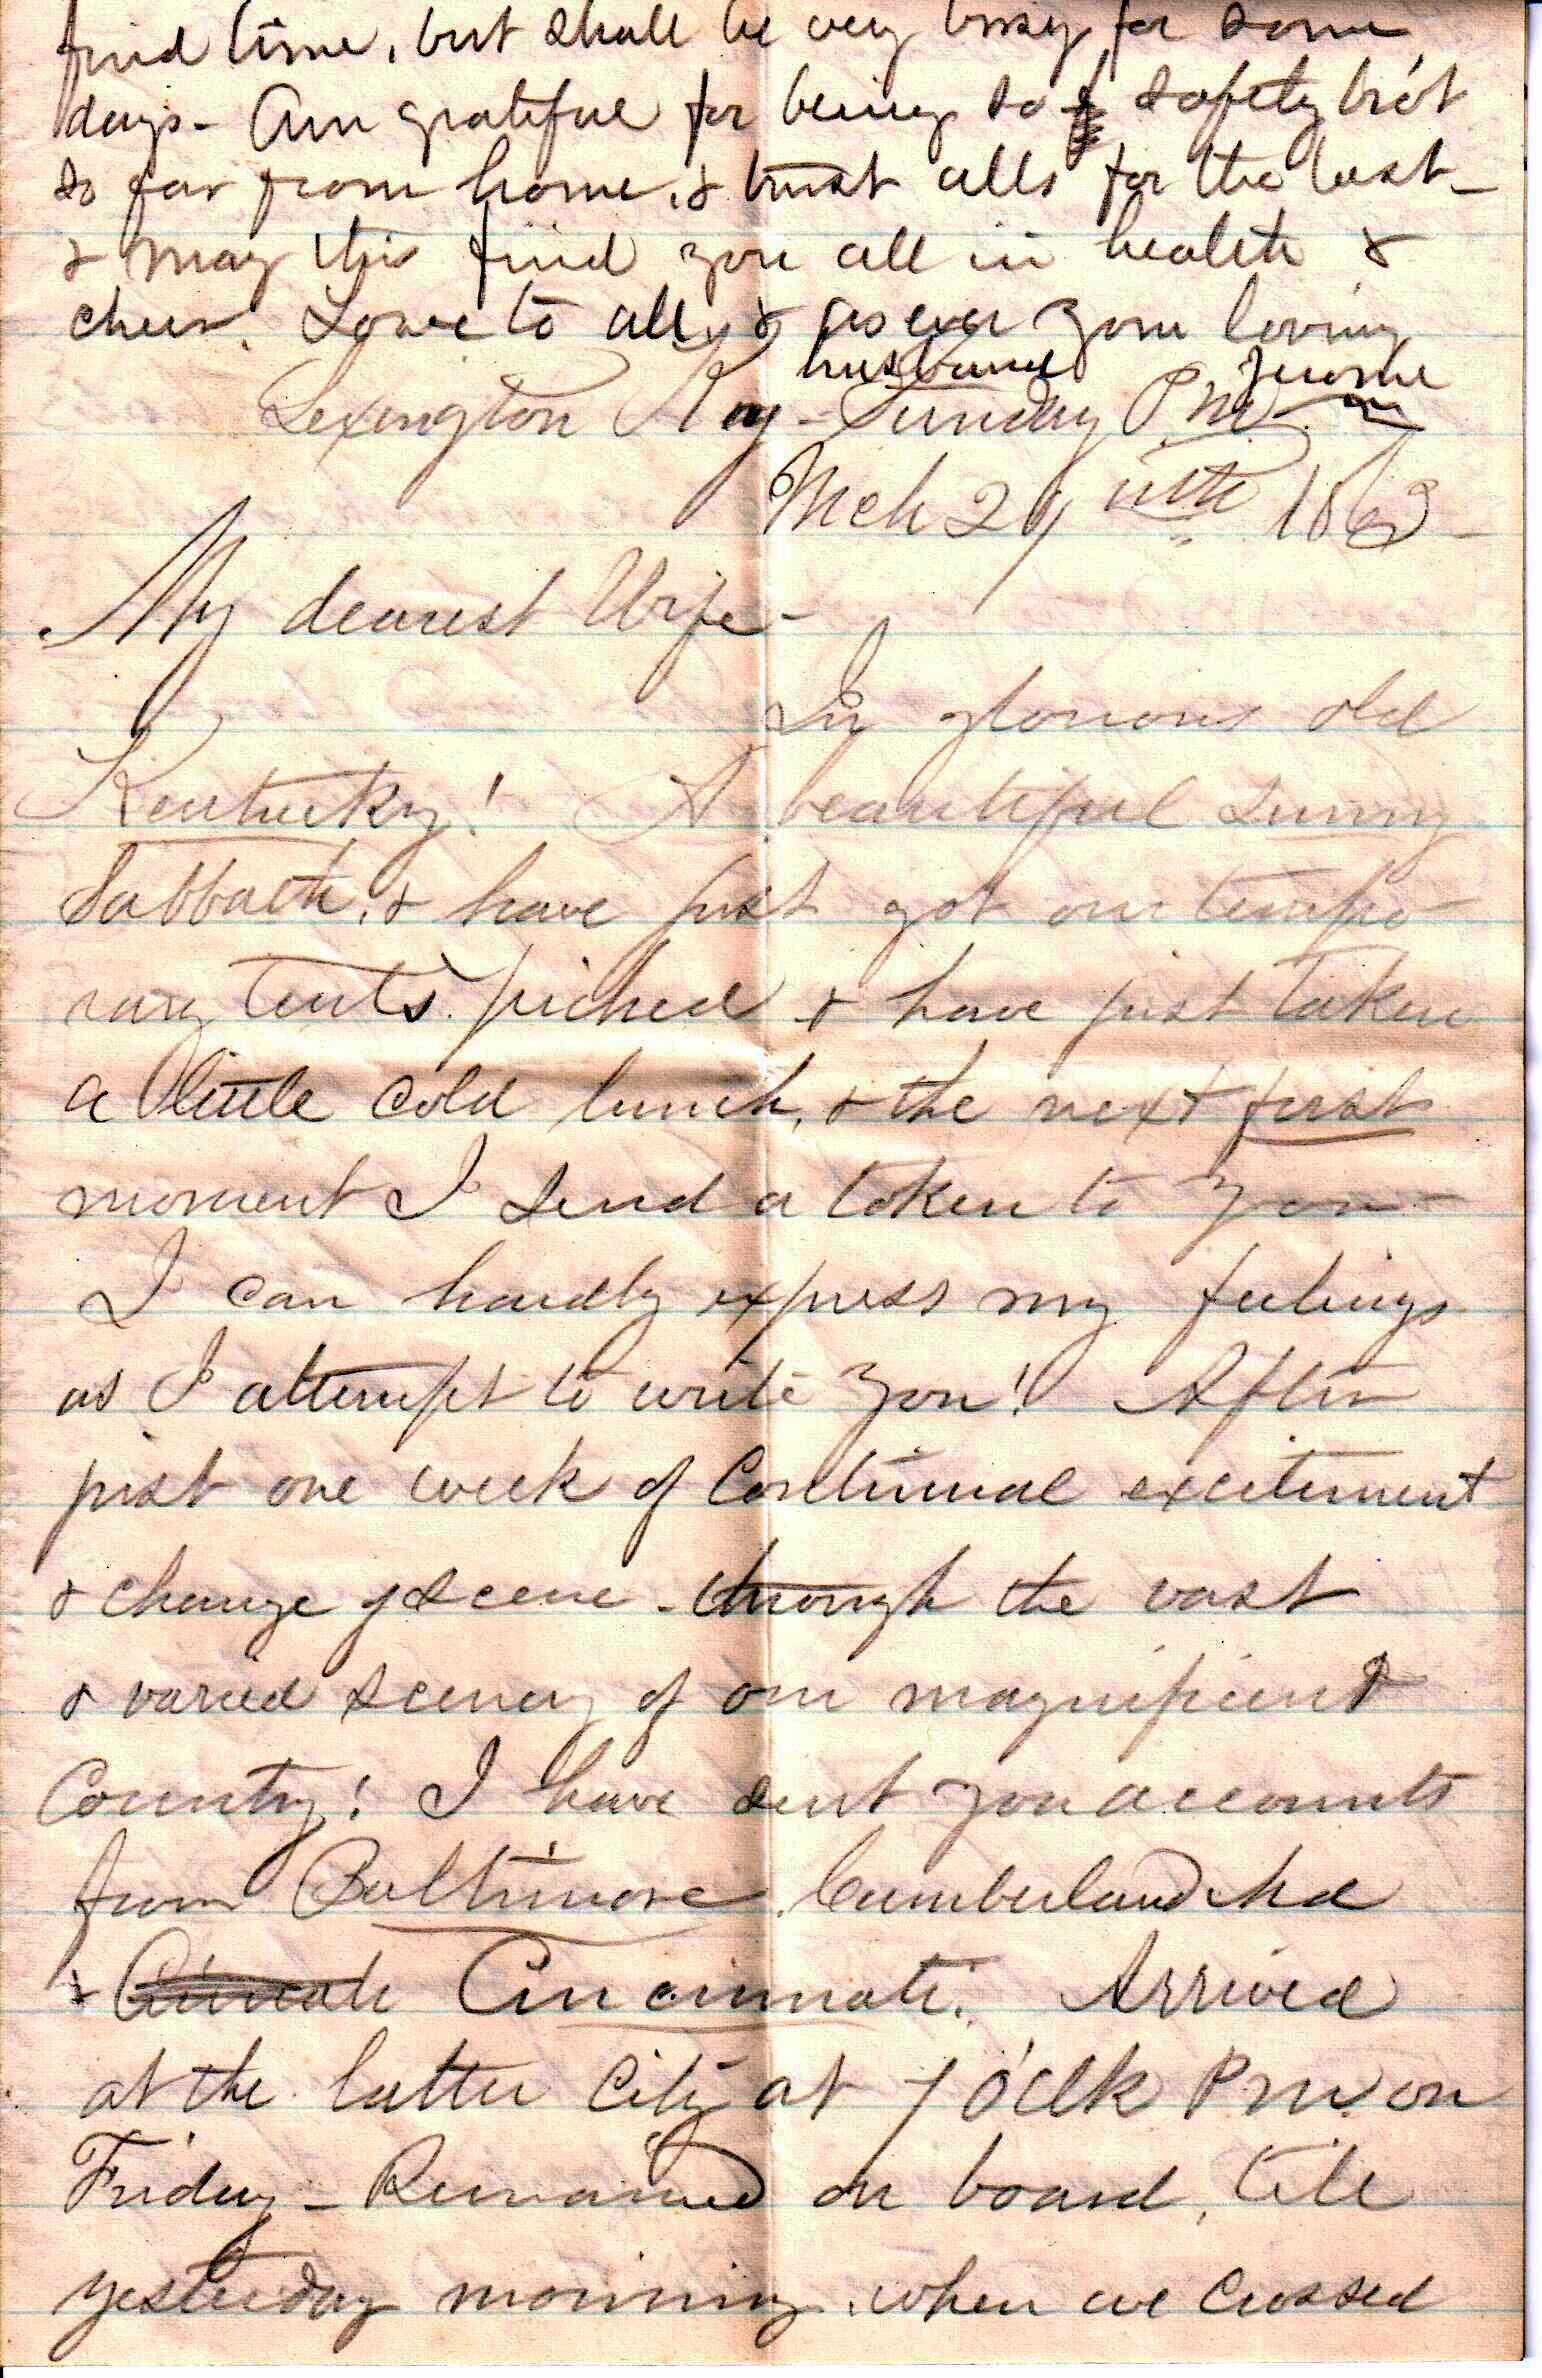 find time, but shall be very busy for some
days - Am grateful for being so safely bro't
so far from home, & trust alls for the best -
& may this find you all in health &
cheer. Love to all, & as ever your loving
husband Jerome
Lexington Ky - Sunday PM -
Mch 29th 1863 -
My dearest Wife -
In glorious old
Kentucky! A beautiful sunny
Sabbath, & have just got our tempo-
rary tents piched & have just taken
a little cold lunch, & the next first
moment I send a token to you -
I can hardly express my feelings
as I attempt to write you! After
just one week of Continual excitement
& change of scene - through the vast
& varied scenery of our magnificent
Country! I have sent you accounts
from Baltimore, Cumberland Md
& Cincinnati. Arrived
at the latter City at 7 O'Clk PM. on
Friday - Remained on board, till
yesterday morning, when we crossed